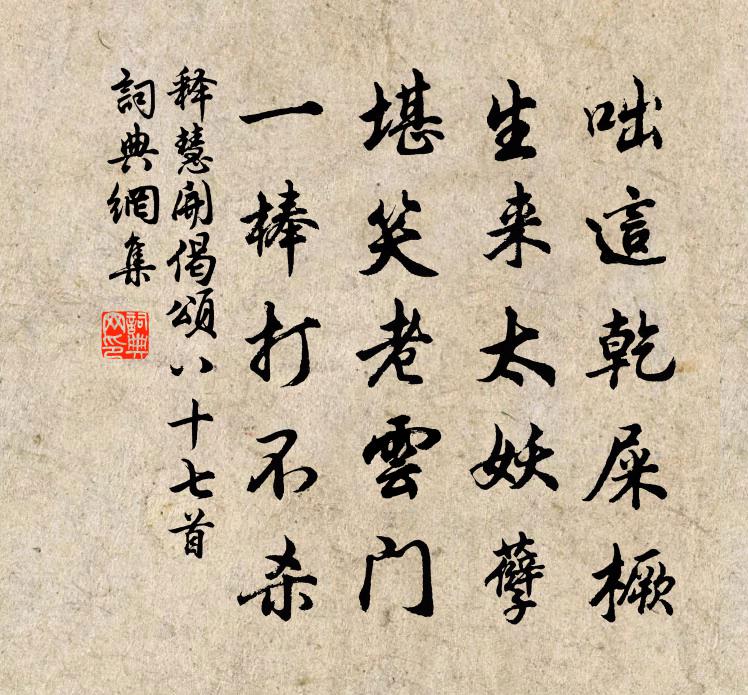 咄這乾屎橛
生来太妖孽
堪笑老雲門
一棒打不杀
释慧開偈頌八十七首
詞典網集
詞典網印